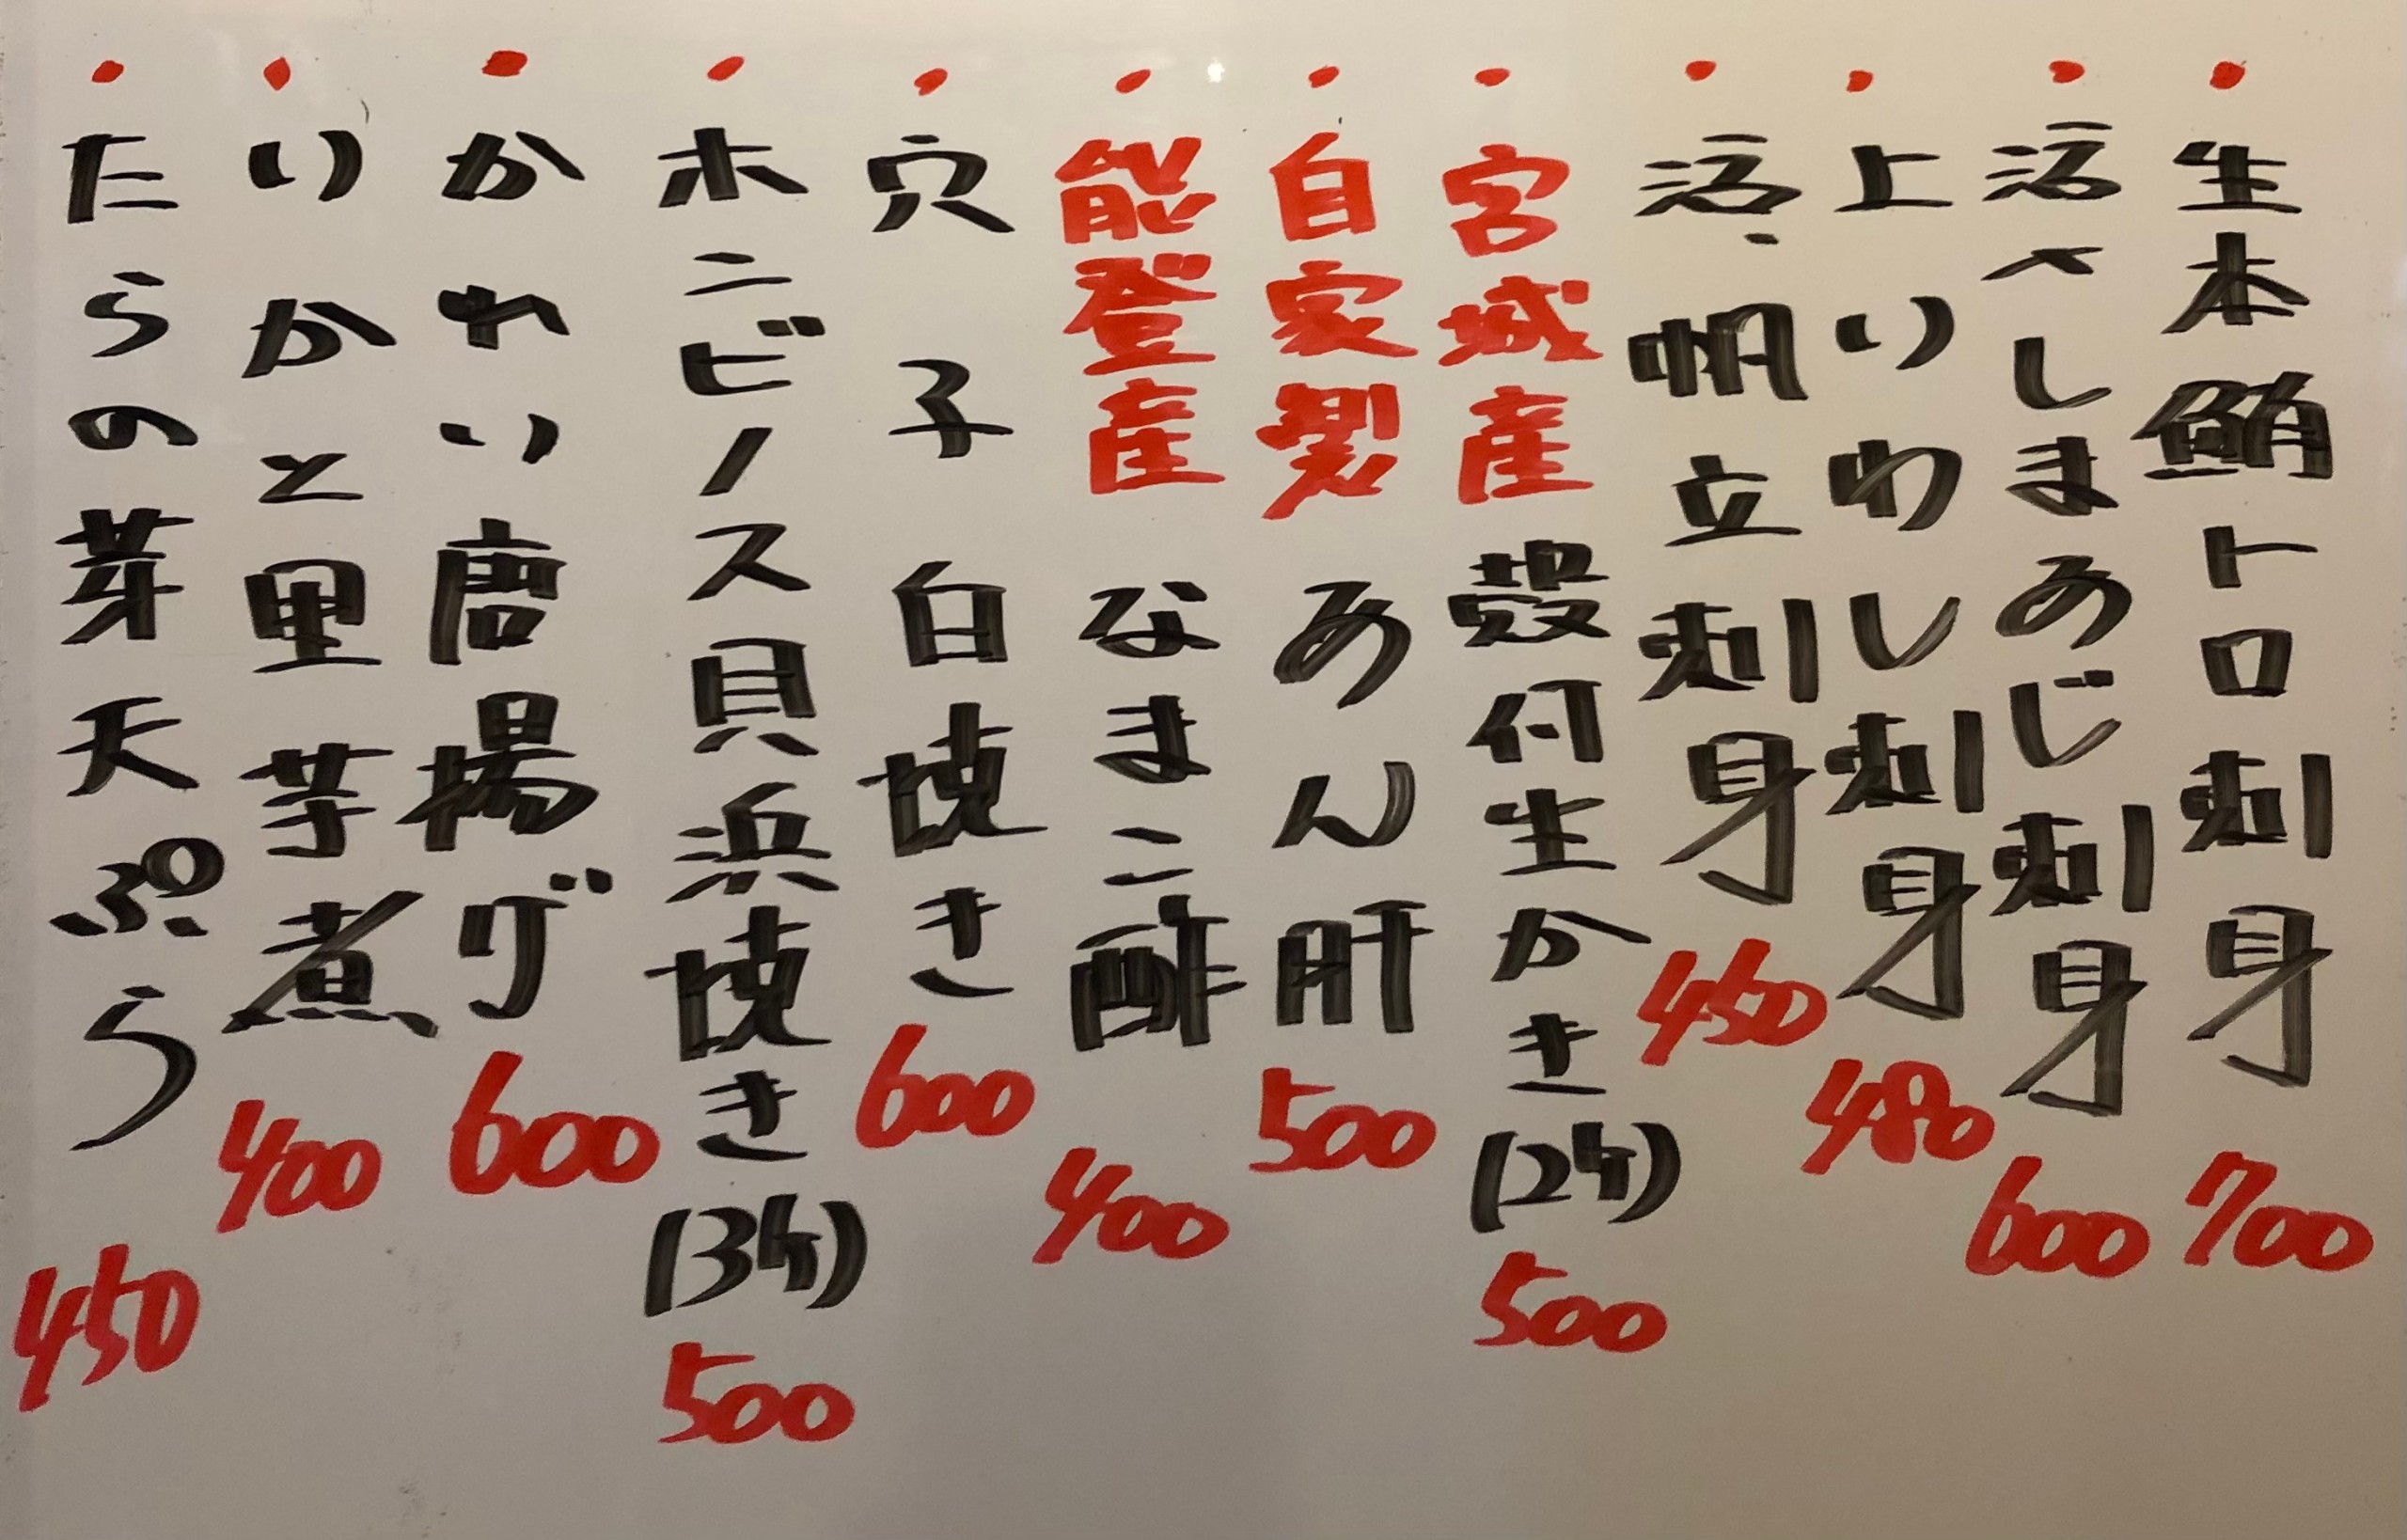 ・生本鮪トロ刺身 700
・活〆しまあじ刺身 600
・上いわし刺身 480
・活帆立刺身 450
・宮城産 殻付生かき(2ケ) 500
・自家製 あん肝 500
・能登産 なまこ酢 400
・穴子白焼き 600
・ホンビノス貝浜焼き(3ケ) 500
・かれい唐揚げ 600
・いかと里芋煮 400
・たらの芽天ぷら 450